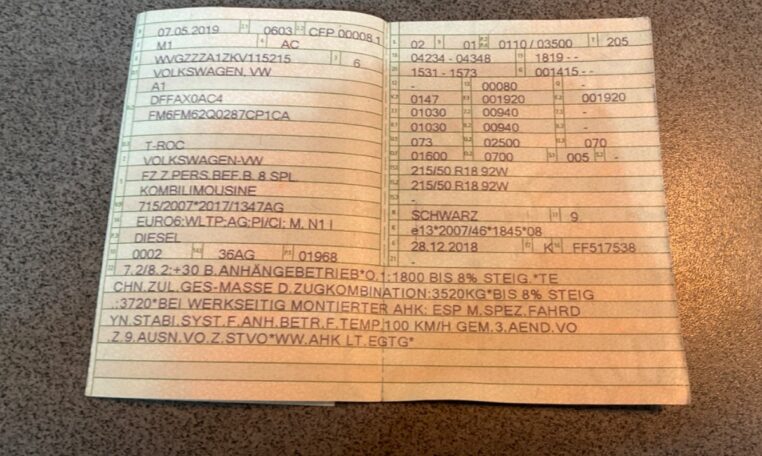 07.05.2019 0603 CFP 00008 1
M1 AC
WVGZZZA1ZKV115215 6
VOLKSWAGEN, VW
A1
DFFAX0AC4
FM6FM62Q0287CP1CA
T-ROC
VOLKSWAGEN-VW
FZ.Z.PERS.BEF.B. 8 SPL.
KOMBILIMOUSINE
715/2007*2017/1347AG
EURO6;WLTP;AG;PI/CI; M, N1 I
DIESEL
0002 36AG 01968
02 01 0110 / 03500 205
04234 - 04348 1819 - -
1531 - 1573 001415 - -
- 00080 -
0147 001920 001920
01030 00940 -
01030 00940 -
073 02500 070
01600 0700 005 -
215/50 R18 92W
215/50 R18 92W
-
SCHWARZ 9
e13*2007/46*1845*08
28.12.2018 K FF517538
-
7.2/8.2:+30 B.ANHÄNGEBETRIEB*O.1:1800 BIS 8% STEIG.*TE
CHN.ZUL.GES-MASSE D.ZUGKOMBINATION:3520KG*BIS 8% STEIG
.:3720*BEI WERKSEITIG MONTIERTER AHK: ESP M.SPEZ.FAHRD
YN.STABI.SYST.F.ANH.BETR.F.TEMP.100 KM/H GEM.3.AEND.VO
.Z.9.AUSN.VO.Z.STVO*WW.AHK LT.EGTG*